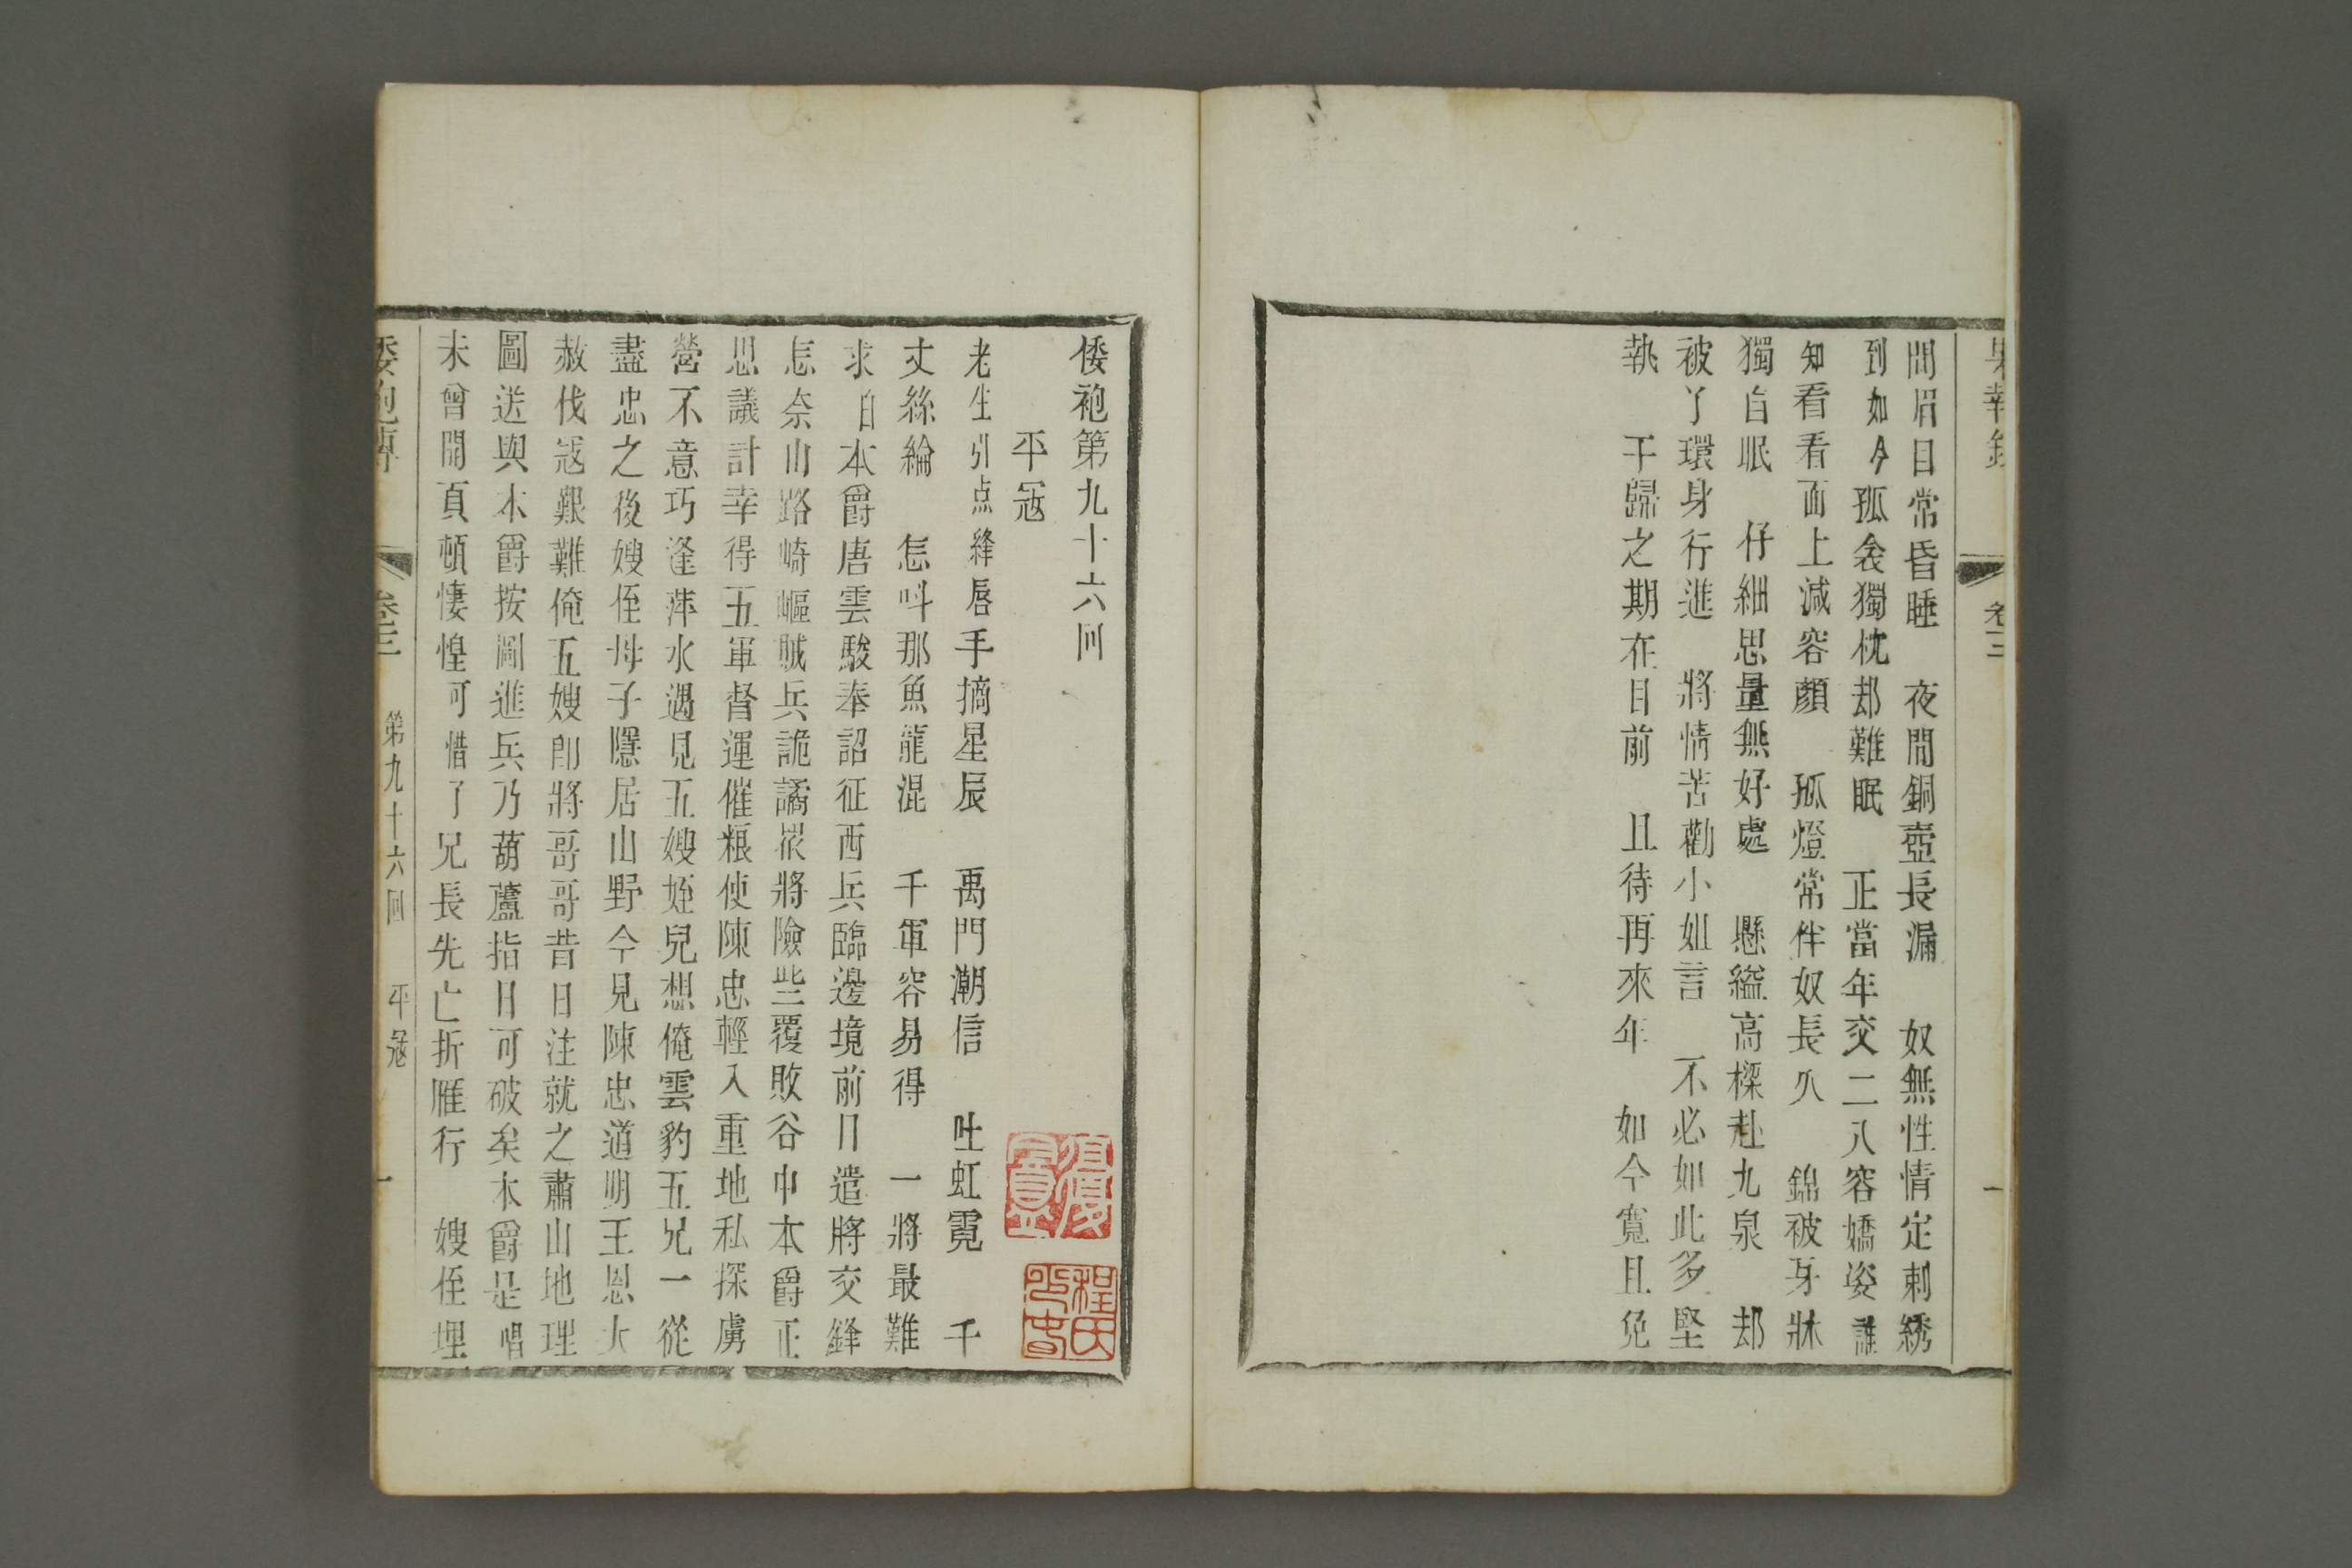 果報錄 卷三 一
間眉目常昏睡 夜間銅壺長漏 奴無性情定刺綉
到如今孤衾獨枕却難眠 正當年交二八容嬌姿誰
知看看面上減容顏 孤燈常伴奴長久 錦被牙牀
獨自眠 仔細思量無好處 懸縊高樑赴九泉 却
被丫環身行進 將情苦勸小姐言 不必如此多堅
執 于歸之期在目前 且待再來年 如今寬且免
倭袍第九十六回
平寇
老生引点絳唇手摘星辰 禹門潮信 吐虹霓 千
丈絲綸 怎呌那魚龍混 千軍容易得 一將最難
求 自本爵唐雲駿奉詔征西兵臨邊境前日遣將交鋒
怎奈山路崎嶇賊兵詭譎衆將險些覆敗谷中本爵正
思議計幸得五軍督運催粮使陳忠輕入重地私探虜
營不意巧逢萍水遇見五嫂姪兒想俺雲豹五兄一從
盡忠之後嫂侄母子隱居山野今見陳忠道明王恩大
赦伐寇艱難俺五嫂卽將哥哥昔日注就之蕭山地理
圖送與本爵按圖進兵乃葫蘆指日可破矣本爵是唱
未曾開頁頓悽惶可惜了兄長先亡折雁行 嫂侄埋
倭袍傳 卷三 第九十六回 平寇 一
程氏